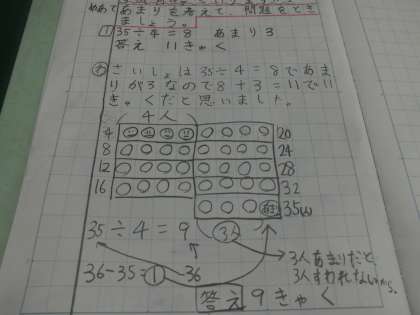 めあて あまりを考えて、問題をとき
ましょう。
① 35÷4=8 あまり3
答え 11きゃく
さいしょは35÷4=8であま
りが3なので8+3=11で11
きゃくだと思いました。
4人
4 20
8 24
12 28
16 32
35(人)
35÷4=9 3人
3人あまりだと、
3人すわれない
36-35=① 36
答え 9きゃく